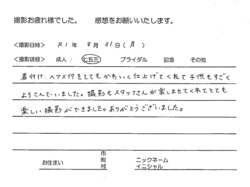 撮影お疲れ様でした。 感想をお願いいたします。
<撮影日時> R1年 8月 31日(月)
<撮影項目> 成人・七五三・ブライダル 記念 その他
着付け、ヘアメイクをとてもかわいく仕上げてくれて子供もすごく
よろこんでいました。撮影もスタッフさんが楽しませてくれてとても
楽しい撮影ができました。ありがとうございました。
お住まい 市 町 村 ニックネーム イニシャル